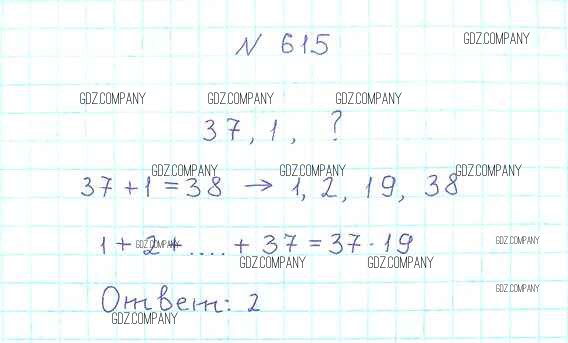 N 615
GDZ.COMPANY
GDZ.COMPANY GDZ.COMPANY GDZ.COMPANY
37, 1, ?
GDZ.COMPANY GDZ.COMPANY GDZ.COMPANY
37 + 1 = 38 → 1, 2, 19, 38
1 + 2 + .... + 37 = 37 · 19
GDZ.COMPANY GDZ.COMPANY
GDZ.COMPANY GDZ.COMPANY
GDZ.COMPANY
Ответ: 2
GDZ.COMPANY